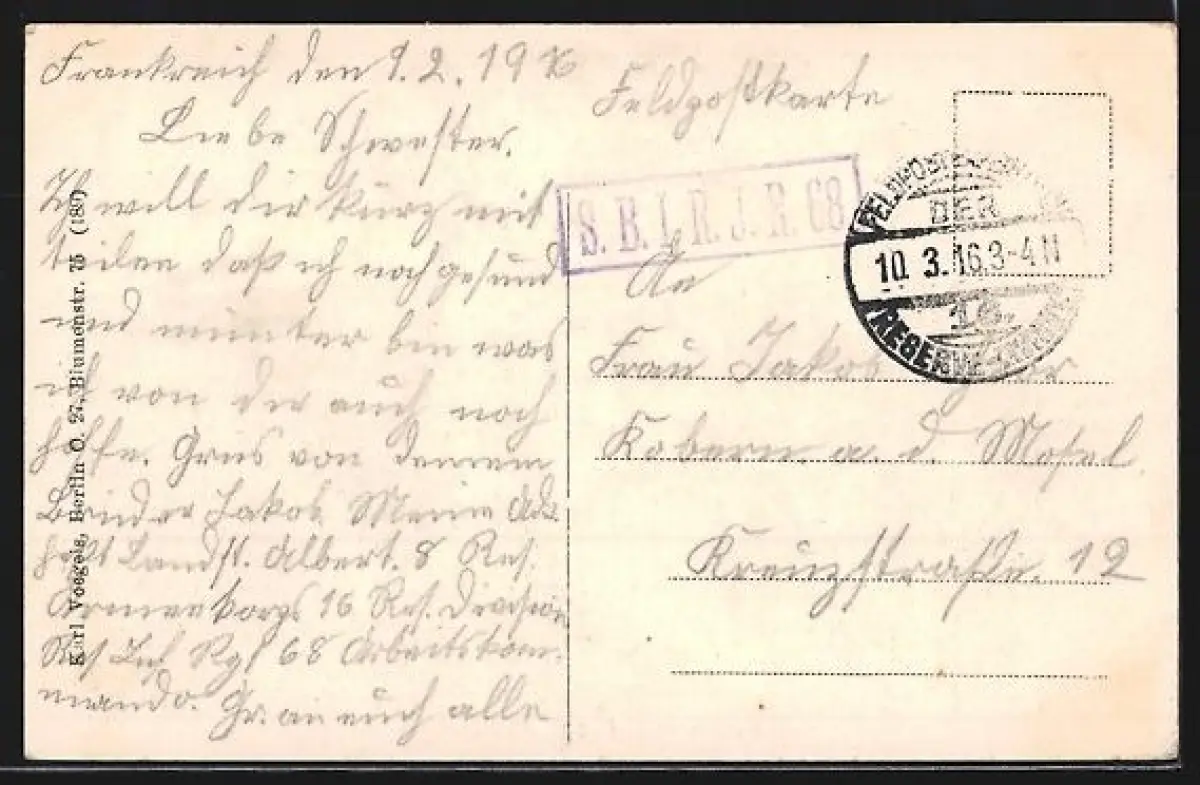 Frankreich den 9.2.1916
Liebe Schwester.
Ich will dir kurz mit
teilen daß ich noch gesund
und munter bin was
ich von dir auch noch
hoffe. Grüs von deinem
Bruder Jakob. Meine
Landst. Albert. 8 Res.
Armeekorps 16 Res. Division
Res Inf Rgt 68 Arbeitskom-
mando. Gr. an euch alle
Karl Voegels, Berlin O. 27, Blumenstr. 75 (189)
Feldpostkarte
S. B. I. R. J. R. 68
DER
10.3.16.3-4 N
16.
RESERVE
An
Frau Jakob
Kobern a. d. Mosel.
Kreuzstraße. 12